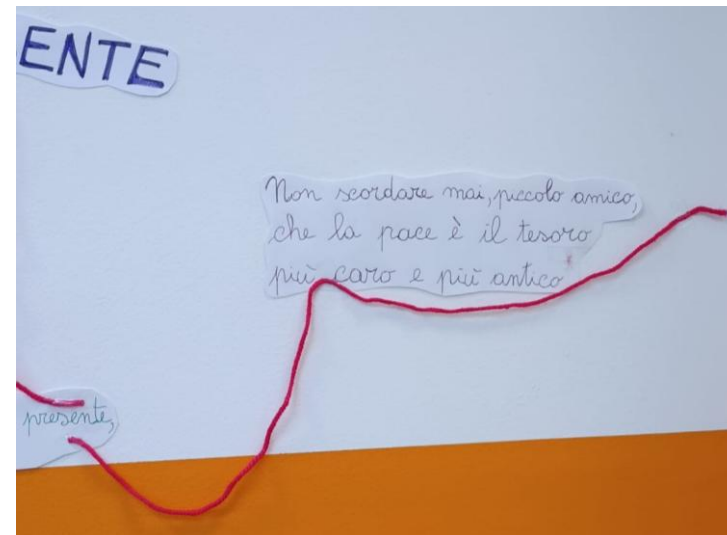 ENTE
Non scordare mai, piccolo amico,
che la pace è il tesoro
più caro e più antico
presente,